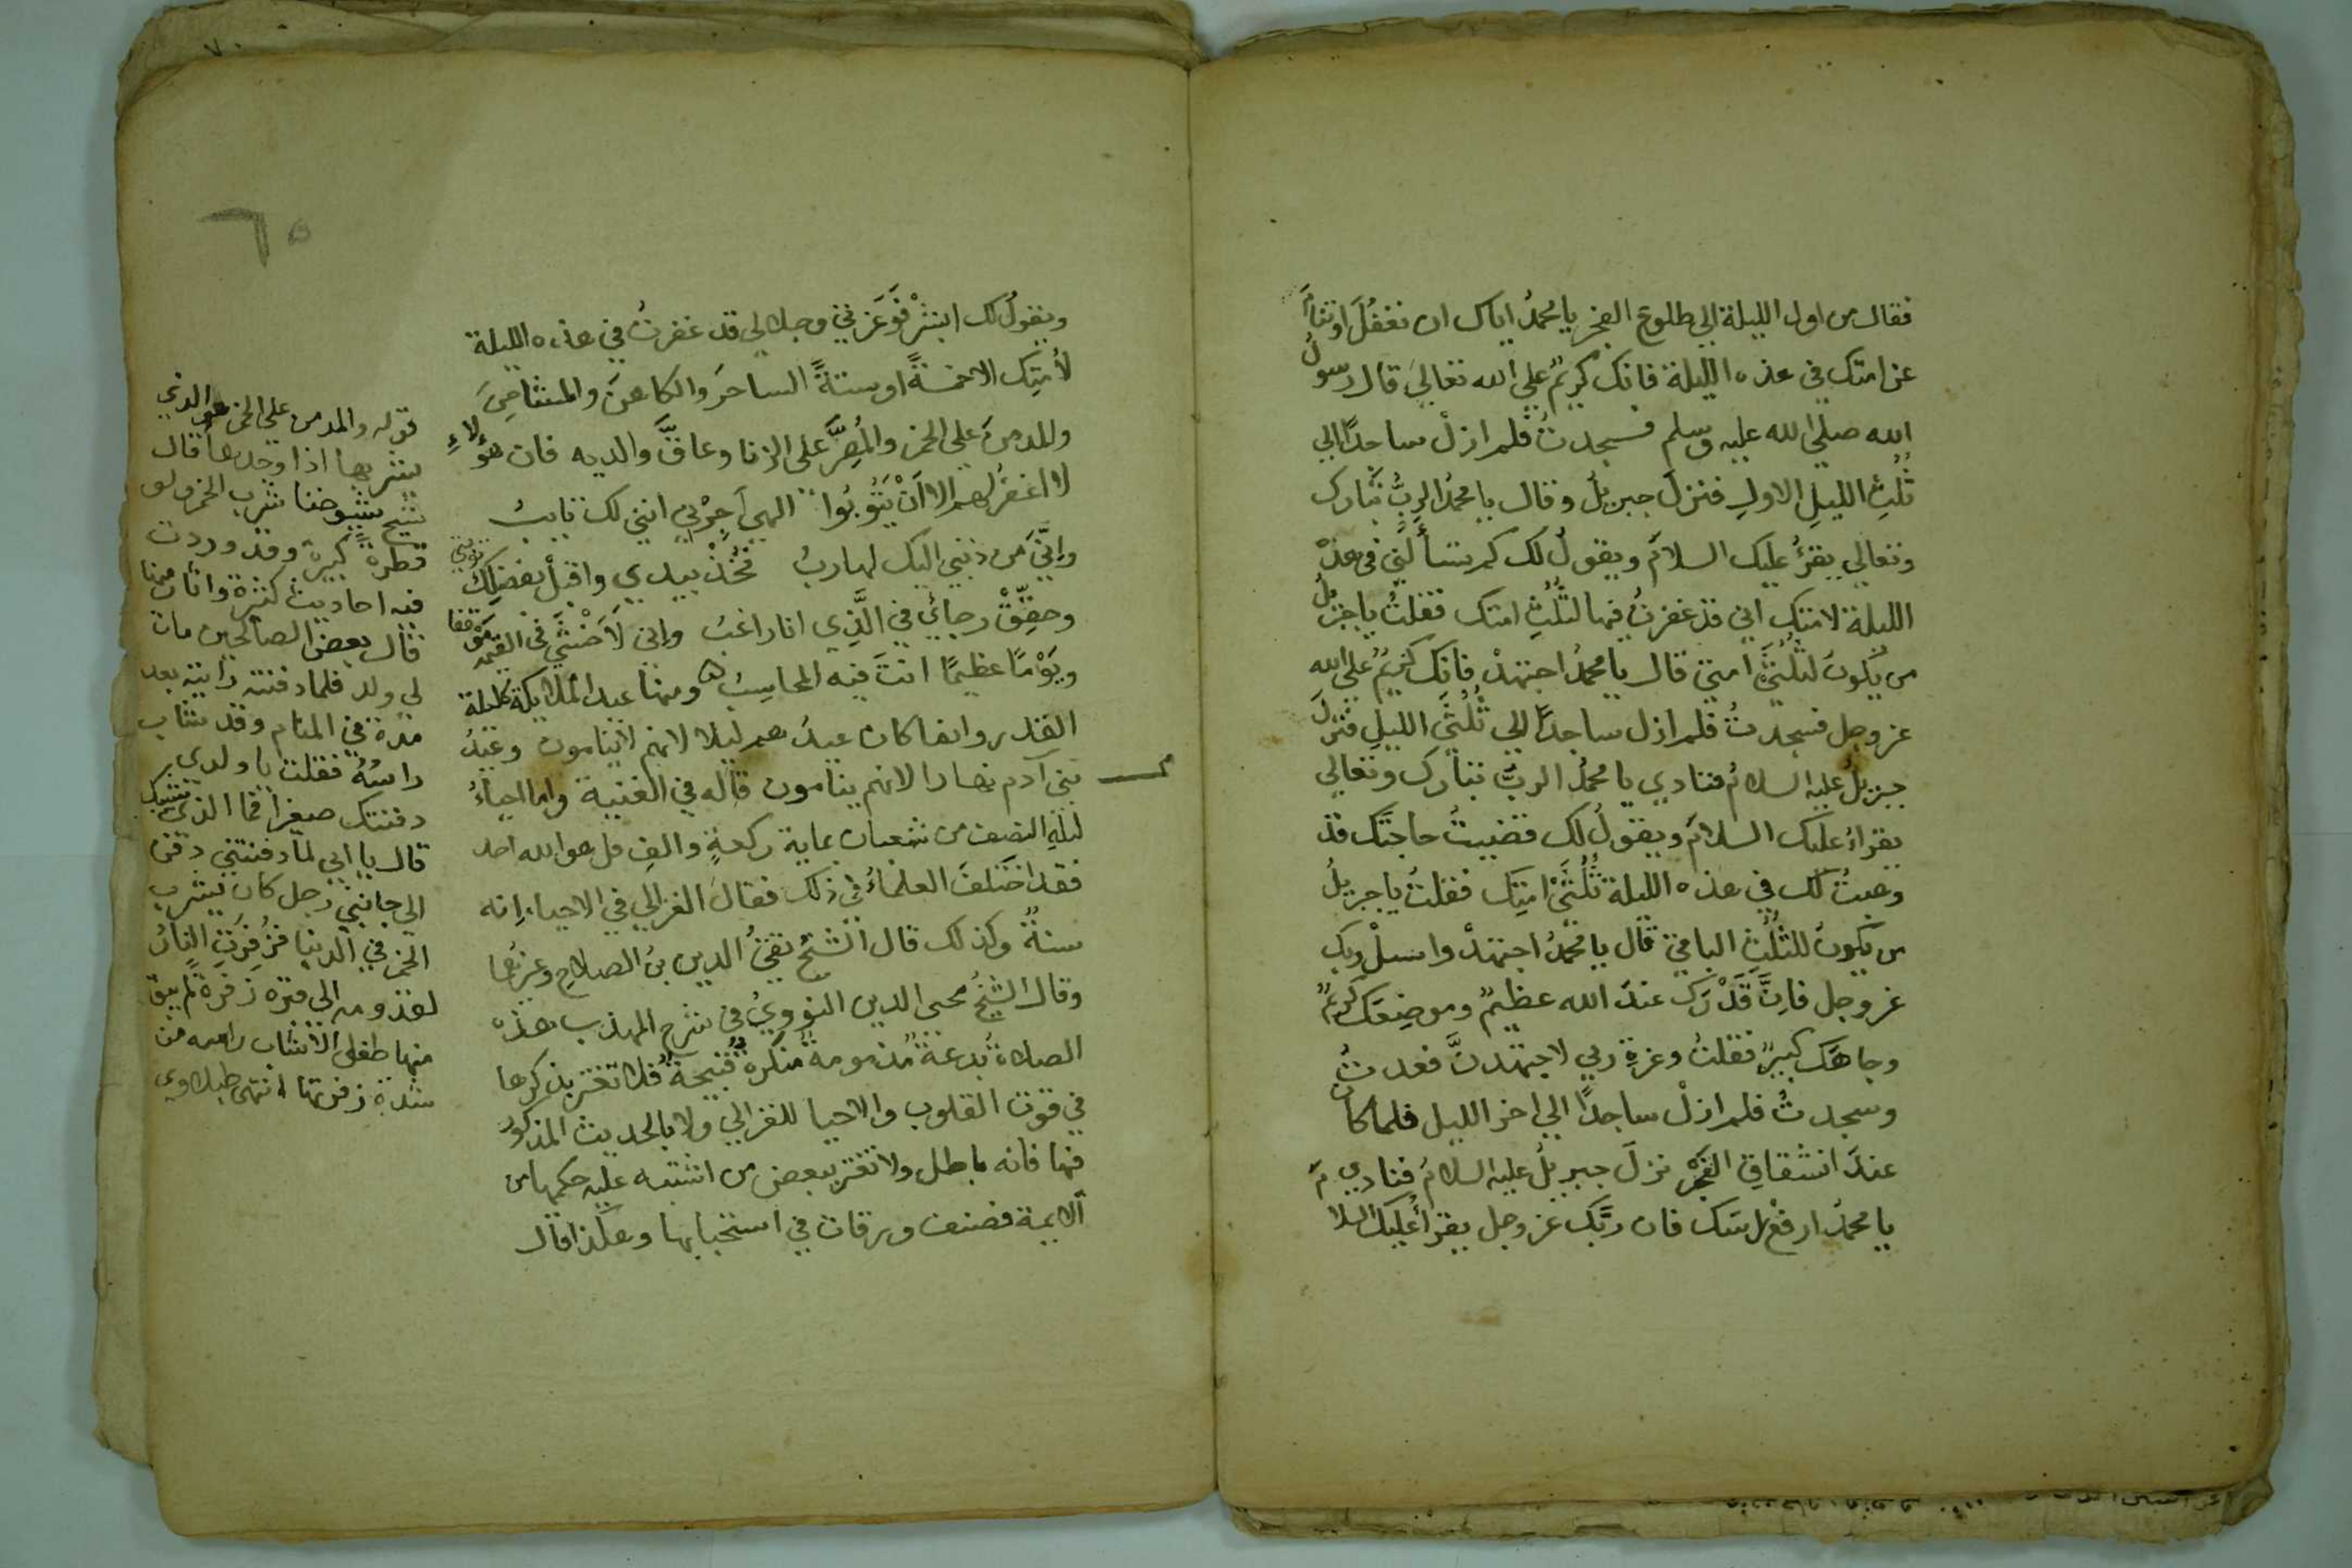 فقال من اول الليلة الي طلوع الفجر يا محمدُ اياك ان تغفُلَ او تنامَ
عن امتك في هذه الليلة فانك كريمٌ علي الله تعاليَ قال رسولُ
الله صلي الله عليه وسلم فسجدتُ فلم ازلْ ساجدًا الي
ثُلُثِ الليلِ الاولِ فنزلَ جبريلُ وقال يا محمدُ الربُّ تبارك
وتعالي يقرئُ عليك السلامَ ويقولُ لك كم تسألُني في هذه
الليلة لامتك اني قد غفرتُ فيها لثُلُثِ امتك فقلتُ يا جبريلُ
من يكونُ لثُلُثَيْ امتي قال يا محمدُ اجتهدْ فانك كريمٌ علي الله
عز وجل فسجدتُ فلم ازل ساجدًا الي ثُلُثَيِ الليلِ فنزلَ
جبريلُ عليه السلامُ فنادي يا محمدُ الربُّ تبارك وتعالي
يقراءُ عليك السلامَ ويقولُ لك قضيتُ حاجتَك قد
وهبتُ لك في هذه الليلة ثُلُثَيْ امتِك فقلتُ يا جبريلُ
من يكونُ للثُلُثِ الباقي قال يا محمدُ اجتهدْ واسئلْ ربك
عز وجل فانَّ قَدْرَك عندَ الله عظيمٌ وموضِعَك كريمٌ
وجاهَك كبيرٌ فقلتُ وعزةِ ربي لاجتهدنَّ فعدتُ
وسجدتُ فلم ازلْ ساجدًا الي اخر الليل فلما كان
عندَ انشقاقِ الفجر نزلَ جبريلُ عليه السلامُ فنادي
يا محمدُ ارفعْ راسك فان ربَّك عز وجل يقرأُ عليك السلام
ويقولُ لك ابشرْ فوَعزتي وجلالي قد غفرتُ في هذه الليلة
لأُمتِك الا خمسةً او ستةً الساحرَ والكاهنَ والمشاحِنَ
والمدمنَ علي الخمر والمُصِرَّ علي الزنا وعاقَّ والديه فان هؤلاءِ
لا اغفرُ لهم الا اَنْ يَتُوبُوا الهي اَجِرْني انني لك تايبُ
وإنِّيَ من ذنبي اليك لهاربُ فخُذْ بيدي واقبلْ بفضلِك توبتي
وحقِّقْ رجائي في الَّذِي انا راغبُ واني لَاَخْشَي في القيمة موقفا
ويَوْمًا عظيمًا انتَ فيه المحاسِبُ ومنها عيد الملايكة كليلة
القدر وانما كان عيدُ هم ليلا لانهم لاينامون وعيدُ
بني آدم نهارا لانهم ينامون قاله في الغنية واما احياءُ
ليلةِ النصف من شعبان بماية ركعةٍ والفِ قل هو الله احد
فقد اختلفَ العلماءُ في ذلك فقالَ الغزالي في الاحياءِ انه
سنةٌ وكذلك قال الشيخُ تقيُّ الدين بنُ الصلاحِ وغيرُها
وقال الشيخُ محيي الدين النوويُّ في شرح المهذب هذه
الصلاةُ بُدعةٌ مُذمومةٌ مُنكرةٌ قُبيحةٌ فلا تغتر بذكرِها
في قوت القلوب والاحيا للغزالي ولا بالحديث المذكور
فيها فانه باطل ولا تغتر ببعض من اشتبه عليه حكمها من
الايمة فصنف ورقات في استحبابها وهكذا قال
٦٥
قوله والمدمن علي الخمر هو الذي
يشربها اذا وجدها قال
شيخ شيوخنا شرب الخمر ولو
قطرة كبيرة وقد وردت
فيه احاديث كثيرة واثار منها
قال بعض الصالحين مات
لي ولد فلما دفنته رايته بعد
مدة في المنام وقد شاب
راسُهُ فقلت يا ولدي
دفنتك صغيرا فما الذي شيبك
قال يا ابي لما دفنتني دفن
الي جانبي رجل كان يشرب
الخمر في الدنيا فزُفِرَتِ النارُ
لقدومه الي قبره زفرة لم يبق
منها طفل الا شاب راسه من
شدة زفرتها انتهي طبلاوي